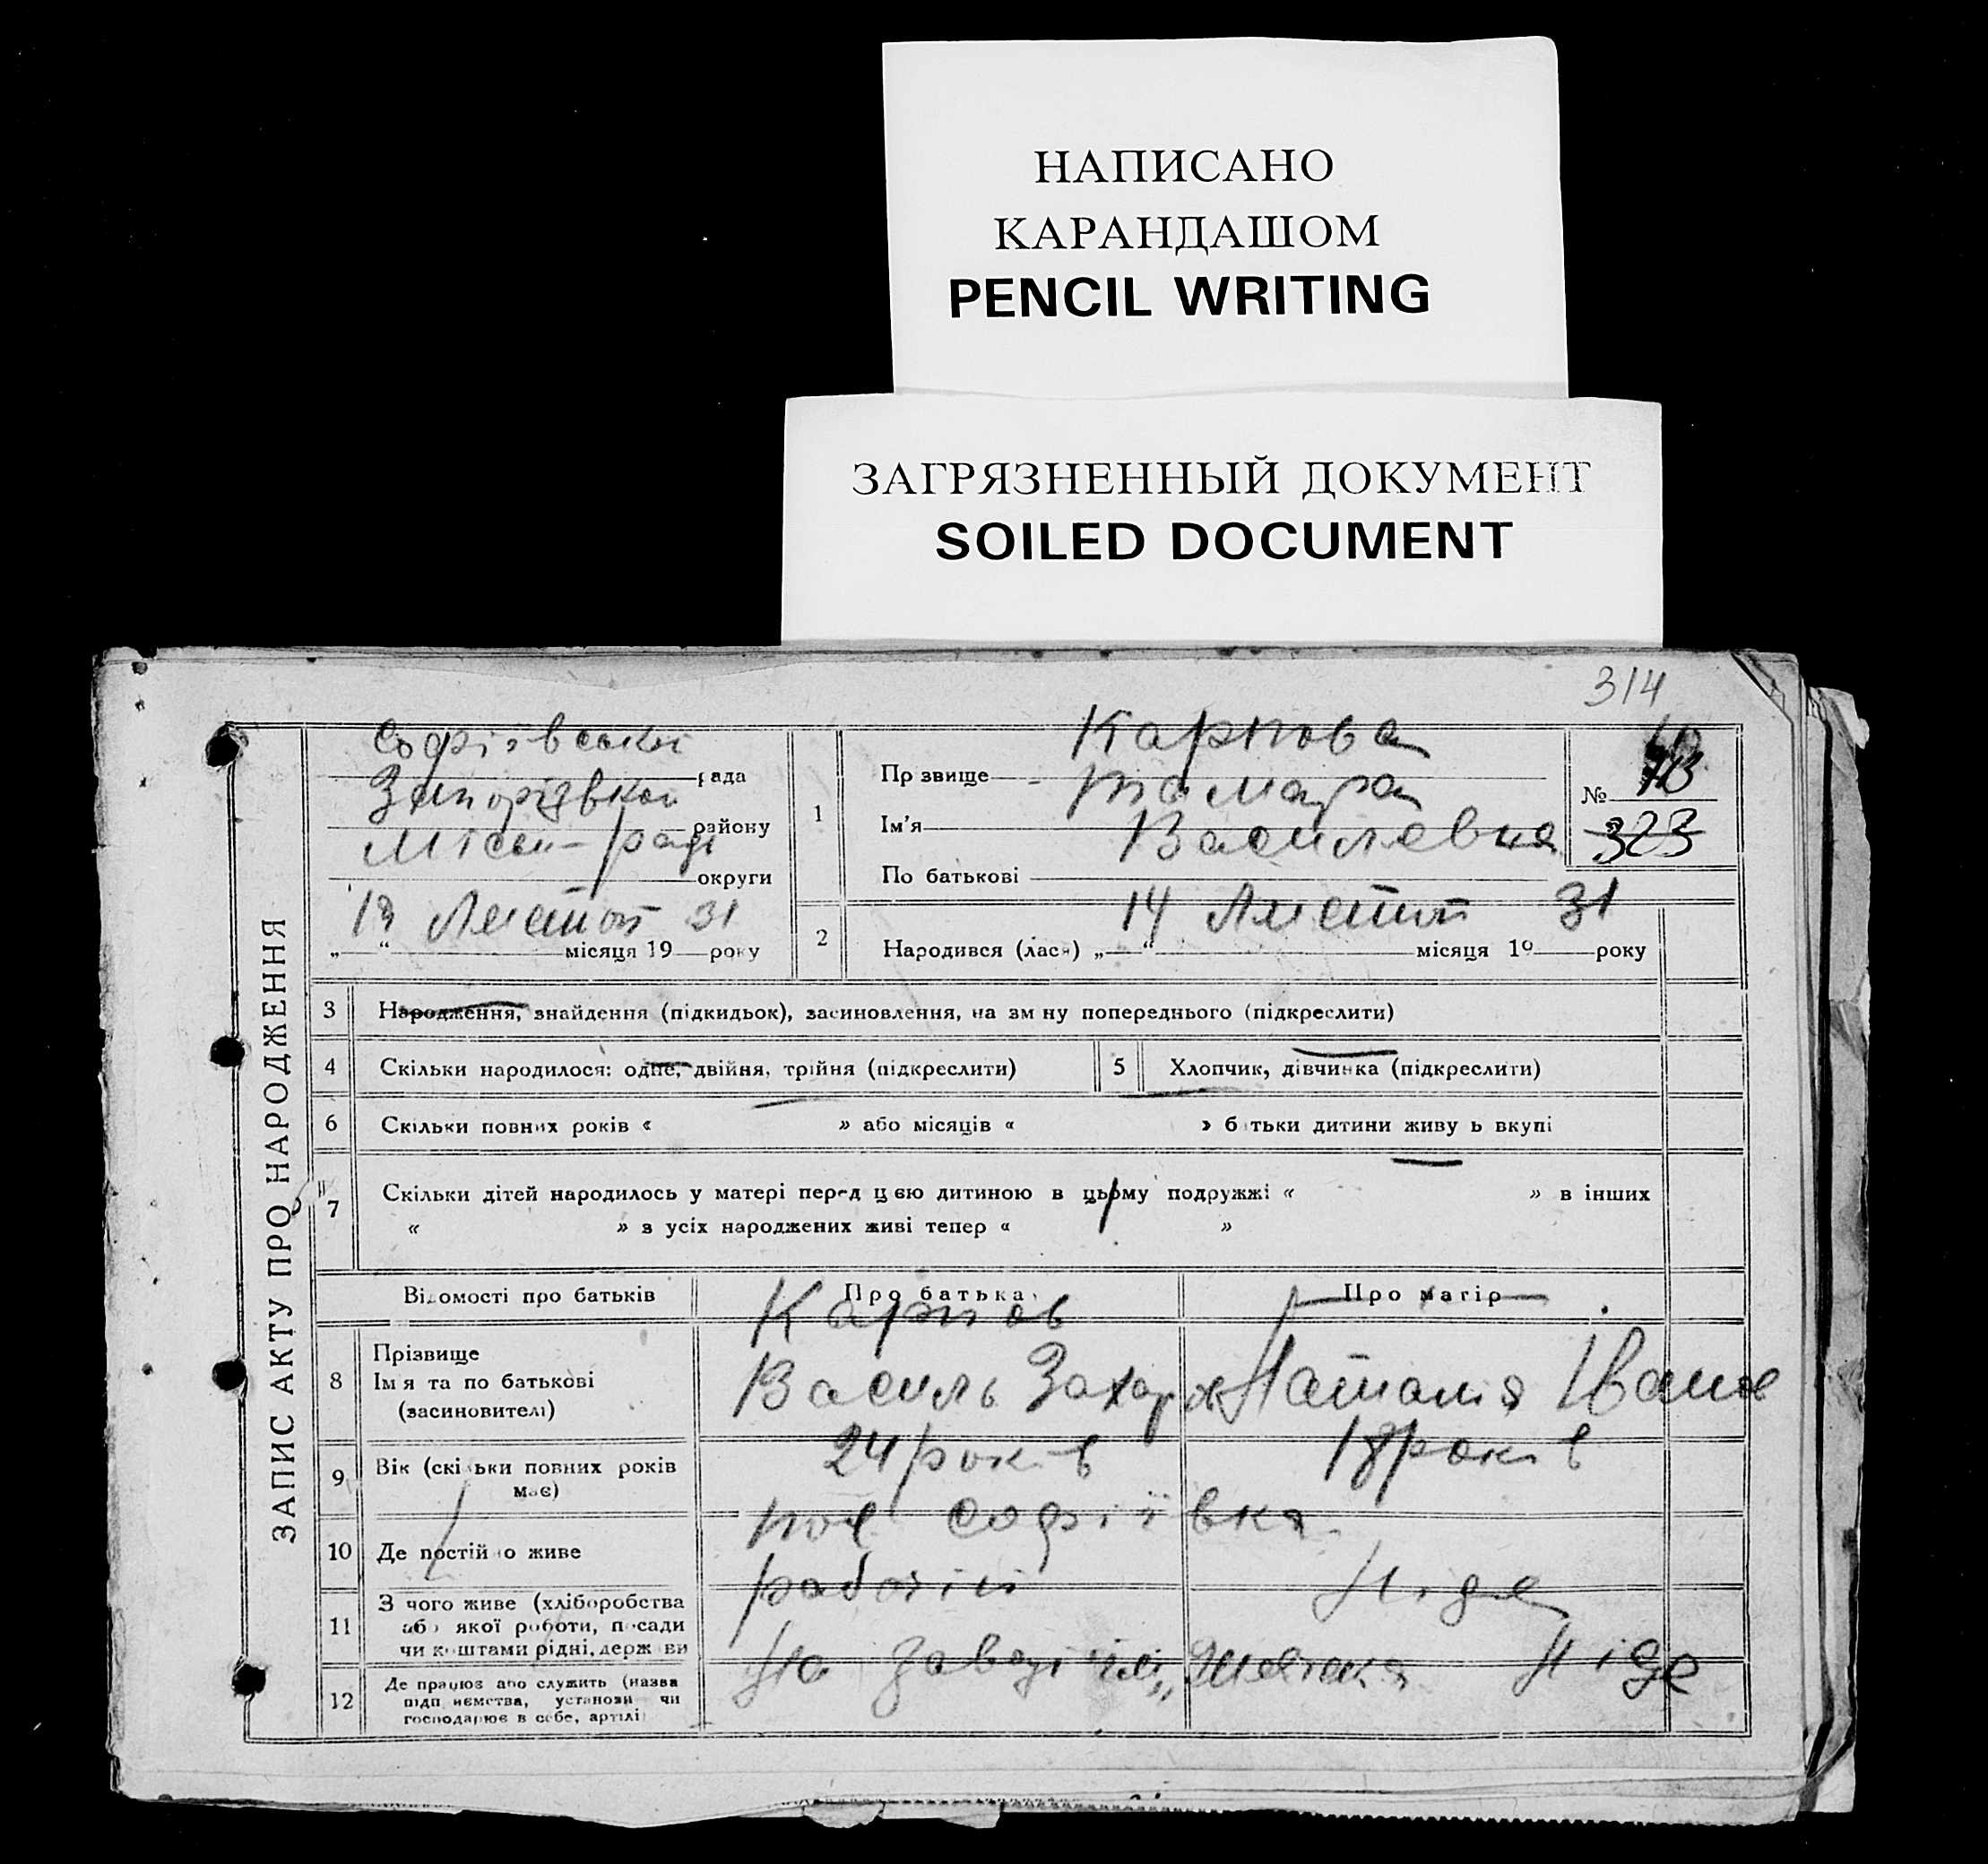 НАПИСАНО
КАРАНДАШОМ
PENCIL WRITING
ЗАГРЯЗНЕННЫЙ ДОКУМЕНТ
SOILED DOCUMENT
314
ЗАПИС АКТУ ПРО НАРОДЖЕННЯ
рада
району
округи
31
„ “ місяця 19 року
1
Карпова
Пр звище
Тамара
Ім'я
Василевна
По батькові
№
323
2
14 31
Народився (лася) „ “ місяця 19 року
3 Народження, знайдення (підкидьок), засиновлення, на зм ну попереднього (підкреслити)
4 Скільки народилося: одне, двійня, трійня (підкреслити)
5 Хлопчик, дівчинка (підкреслити)
6 Скільки повних років « » або місяців « » б тьки дитини живу ь вкупі
7 Скільки дітей народилось у матері перед цією дитиною в цьому подружжі « » в інших
« » з усіх народжених живі тепер « »
Відомості про батьків Про батька Про матір
Карпов
8 Прізвище
Ім я та по батькові
(засиновителі)
Василь Наталія
9 Вік (скільки повних років
має)
24 років 18 років
10 Де постійно живе
Софіївка
11 З чого живе (хліборобства
або якої роботи, посади
чи коштами рідні, держ ви
рабочій Нiде
12 Де працює або служить (назва
підп иємства, установи чи
господарює в себе, артілі
На заводі Нiде